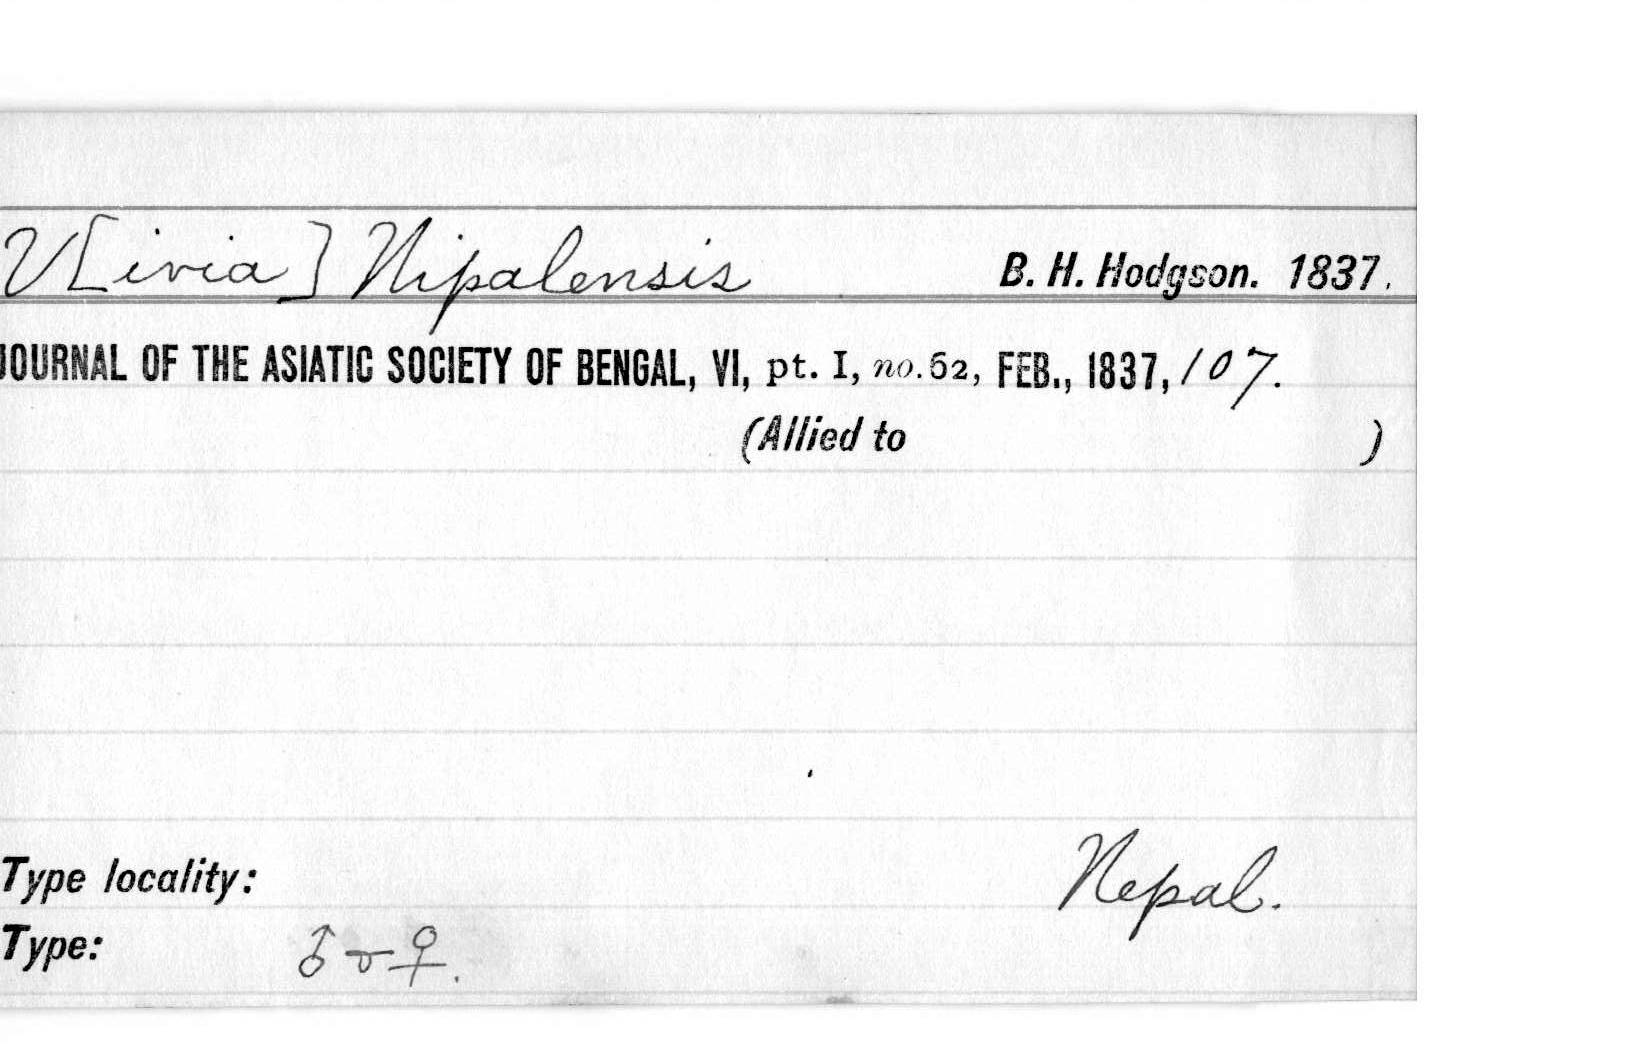 V[ivia] Nipalensis B. H. Hodgson. 1837.
JOURNAL OF THE ASIATIC SOCIETY OF BENGAL, VI, pt. I, no. 62, FEB., 1837, 107.
(Allied to )
Type locality: Nepal.
Type: ♂ ♀.